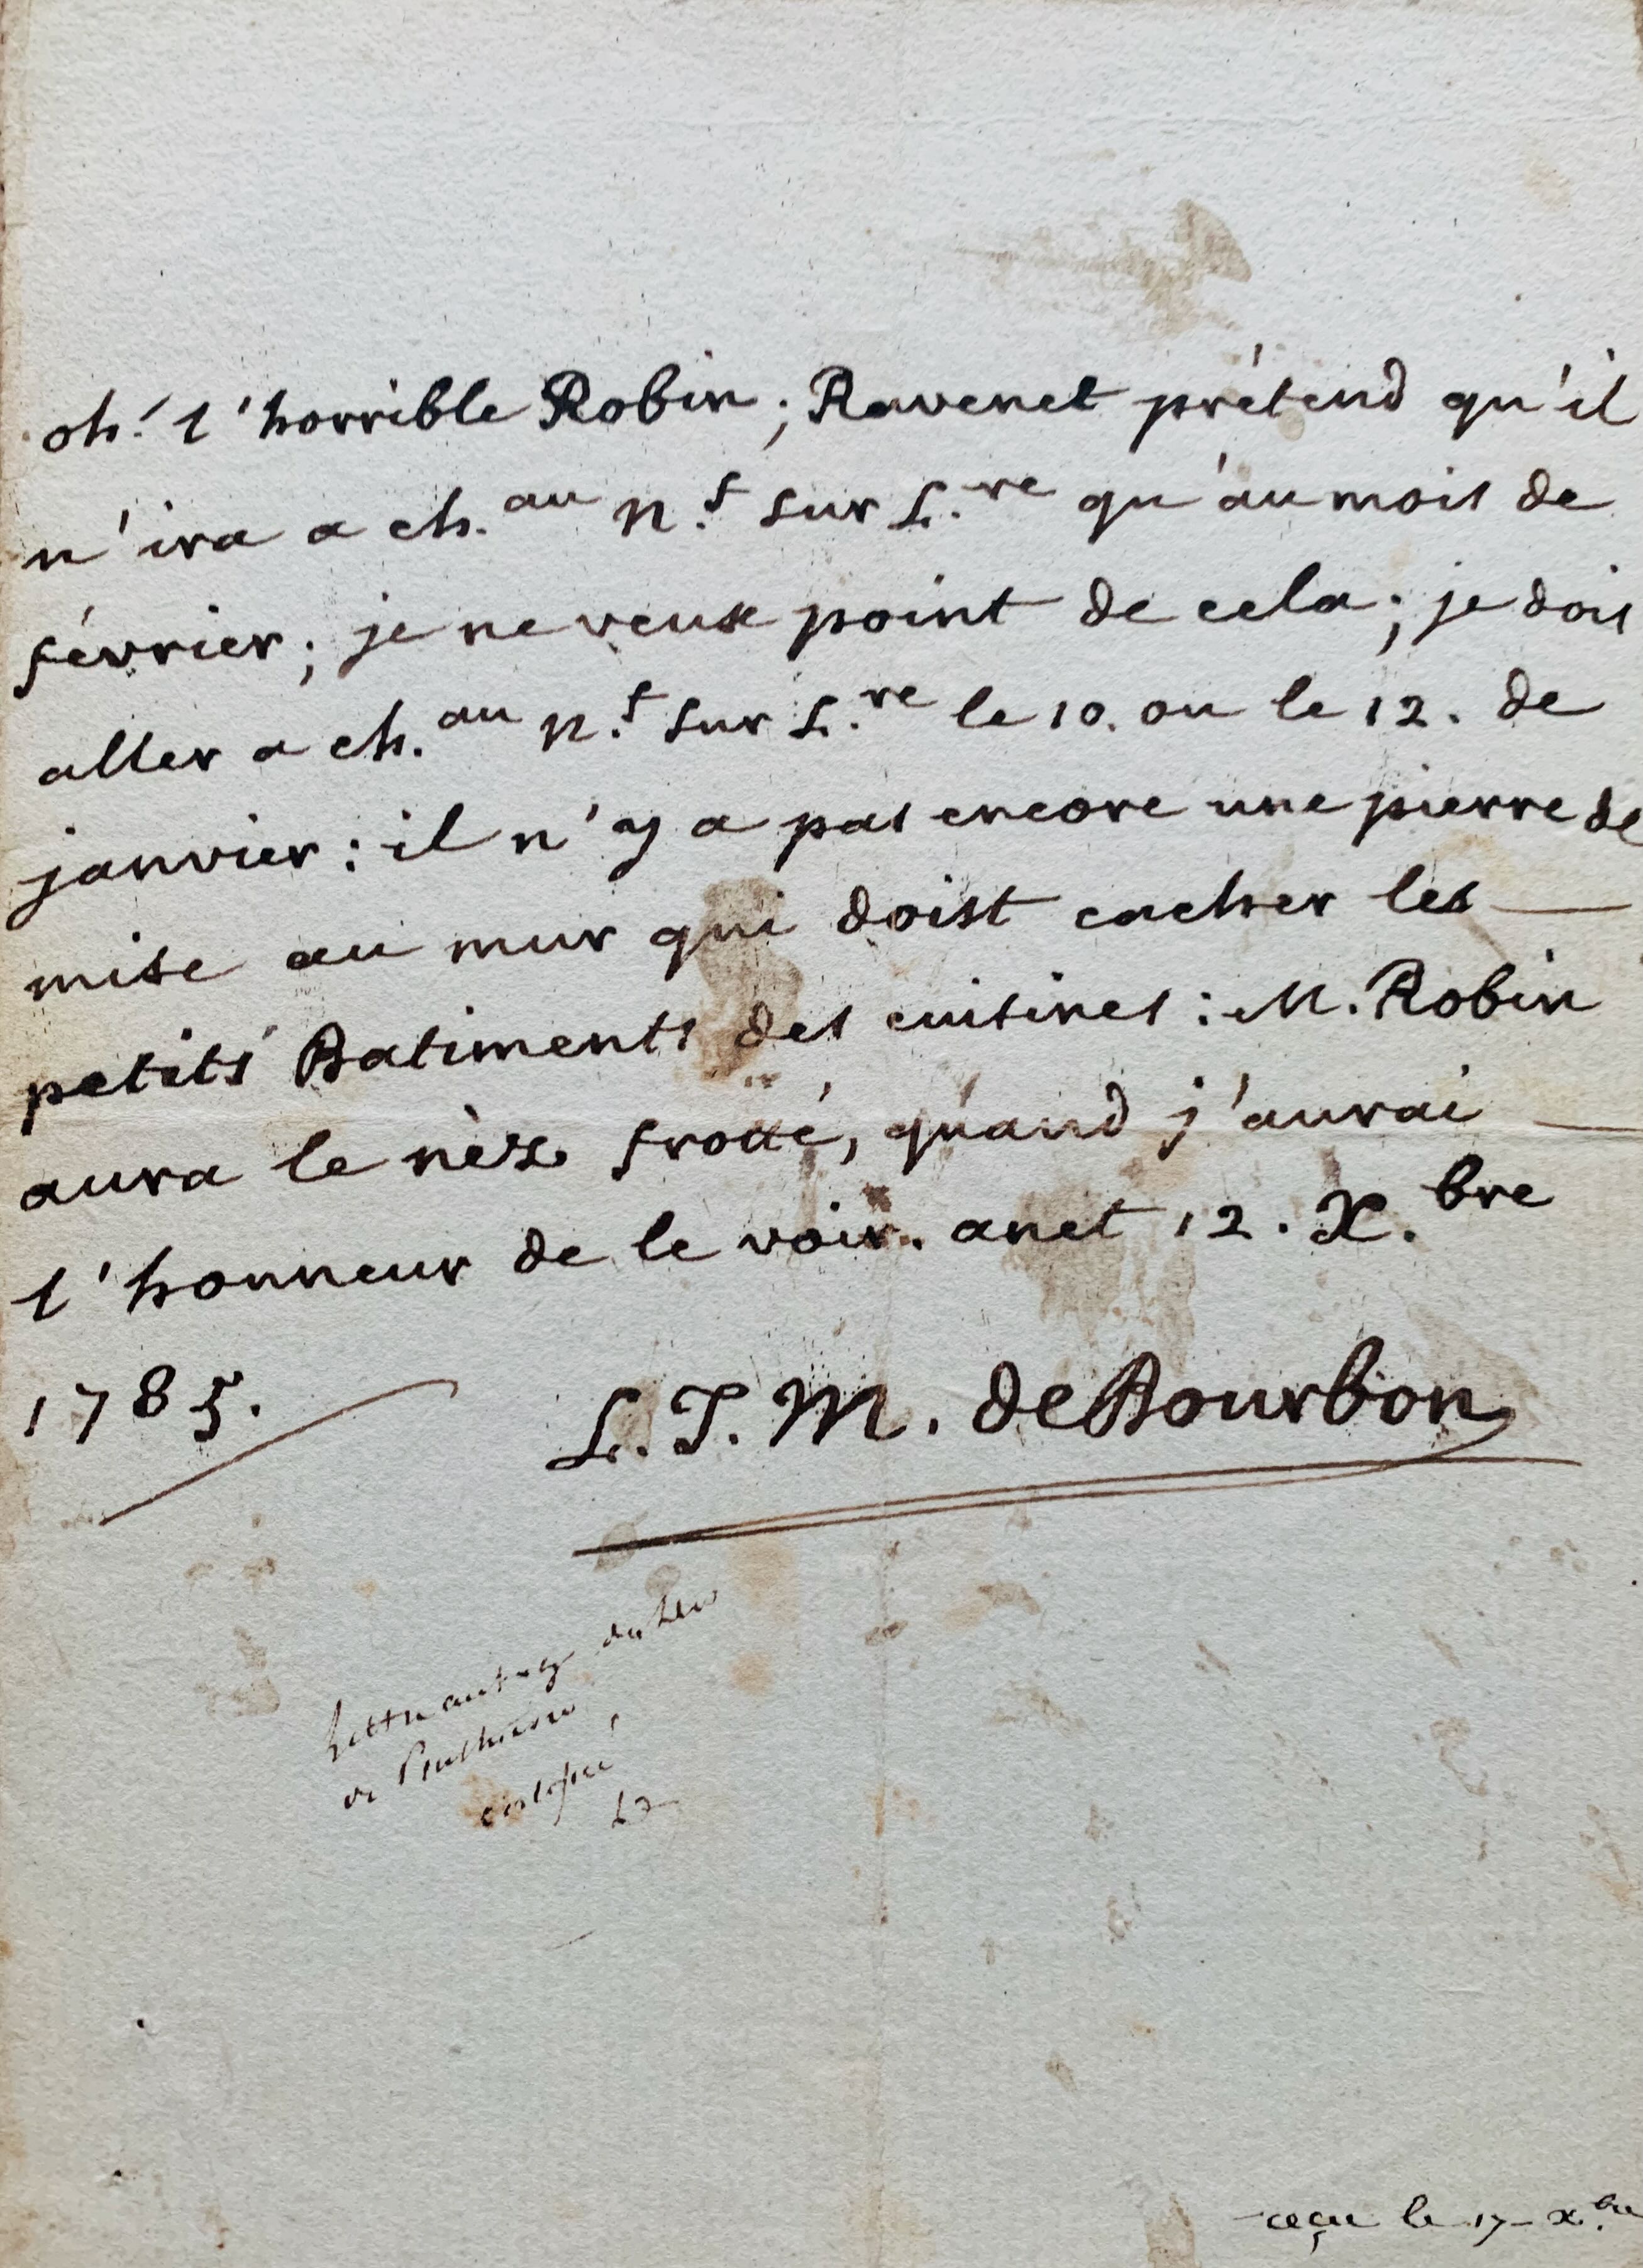 oh! l'horrible Robin; Ravenet prétend qu'il
n'ira a ch.au n.f sur L.re qu'au mois de
février; je ne veux point de cela; je dois
aller a ch.au n.f sur L.re le 10. ou le 12. de
janvier: il n'y a pas encore une pierre de
mise au mur qui doist cacher les
petits Batiments des cuisines: M. Robin
aura le nèz frotté, quand j'aurai
l'honneur de le voir. anet 12. X.bre
1785.
L. J. M. de Bourbon
Lettre autog du Duc
de Penthievre
certifié
reçu le 17 x.bre